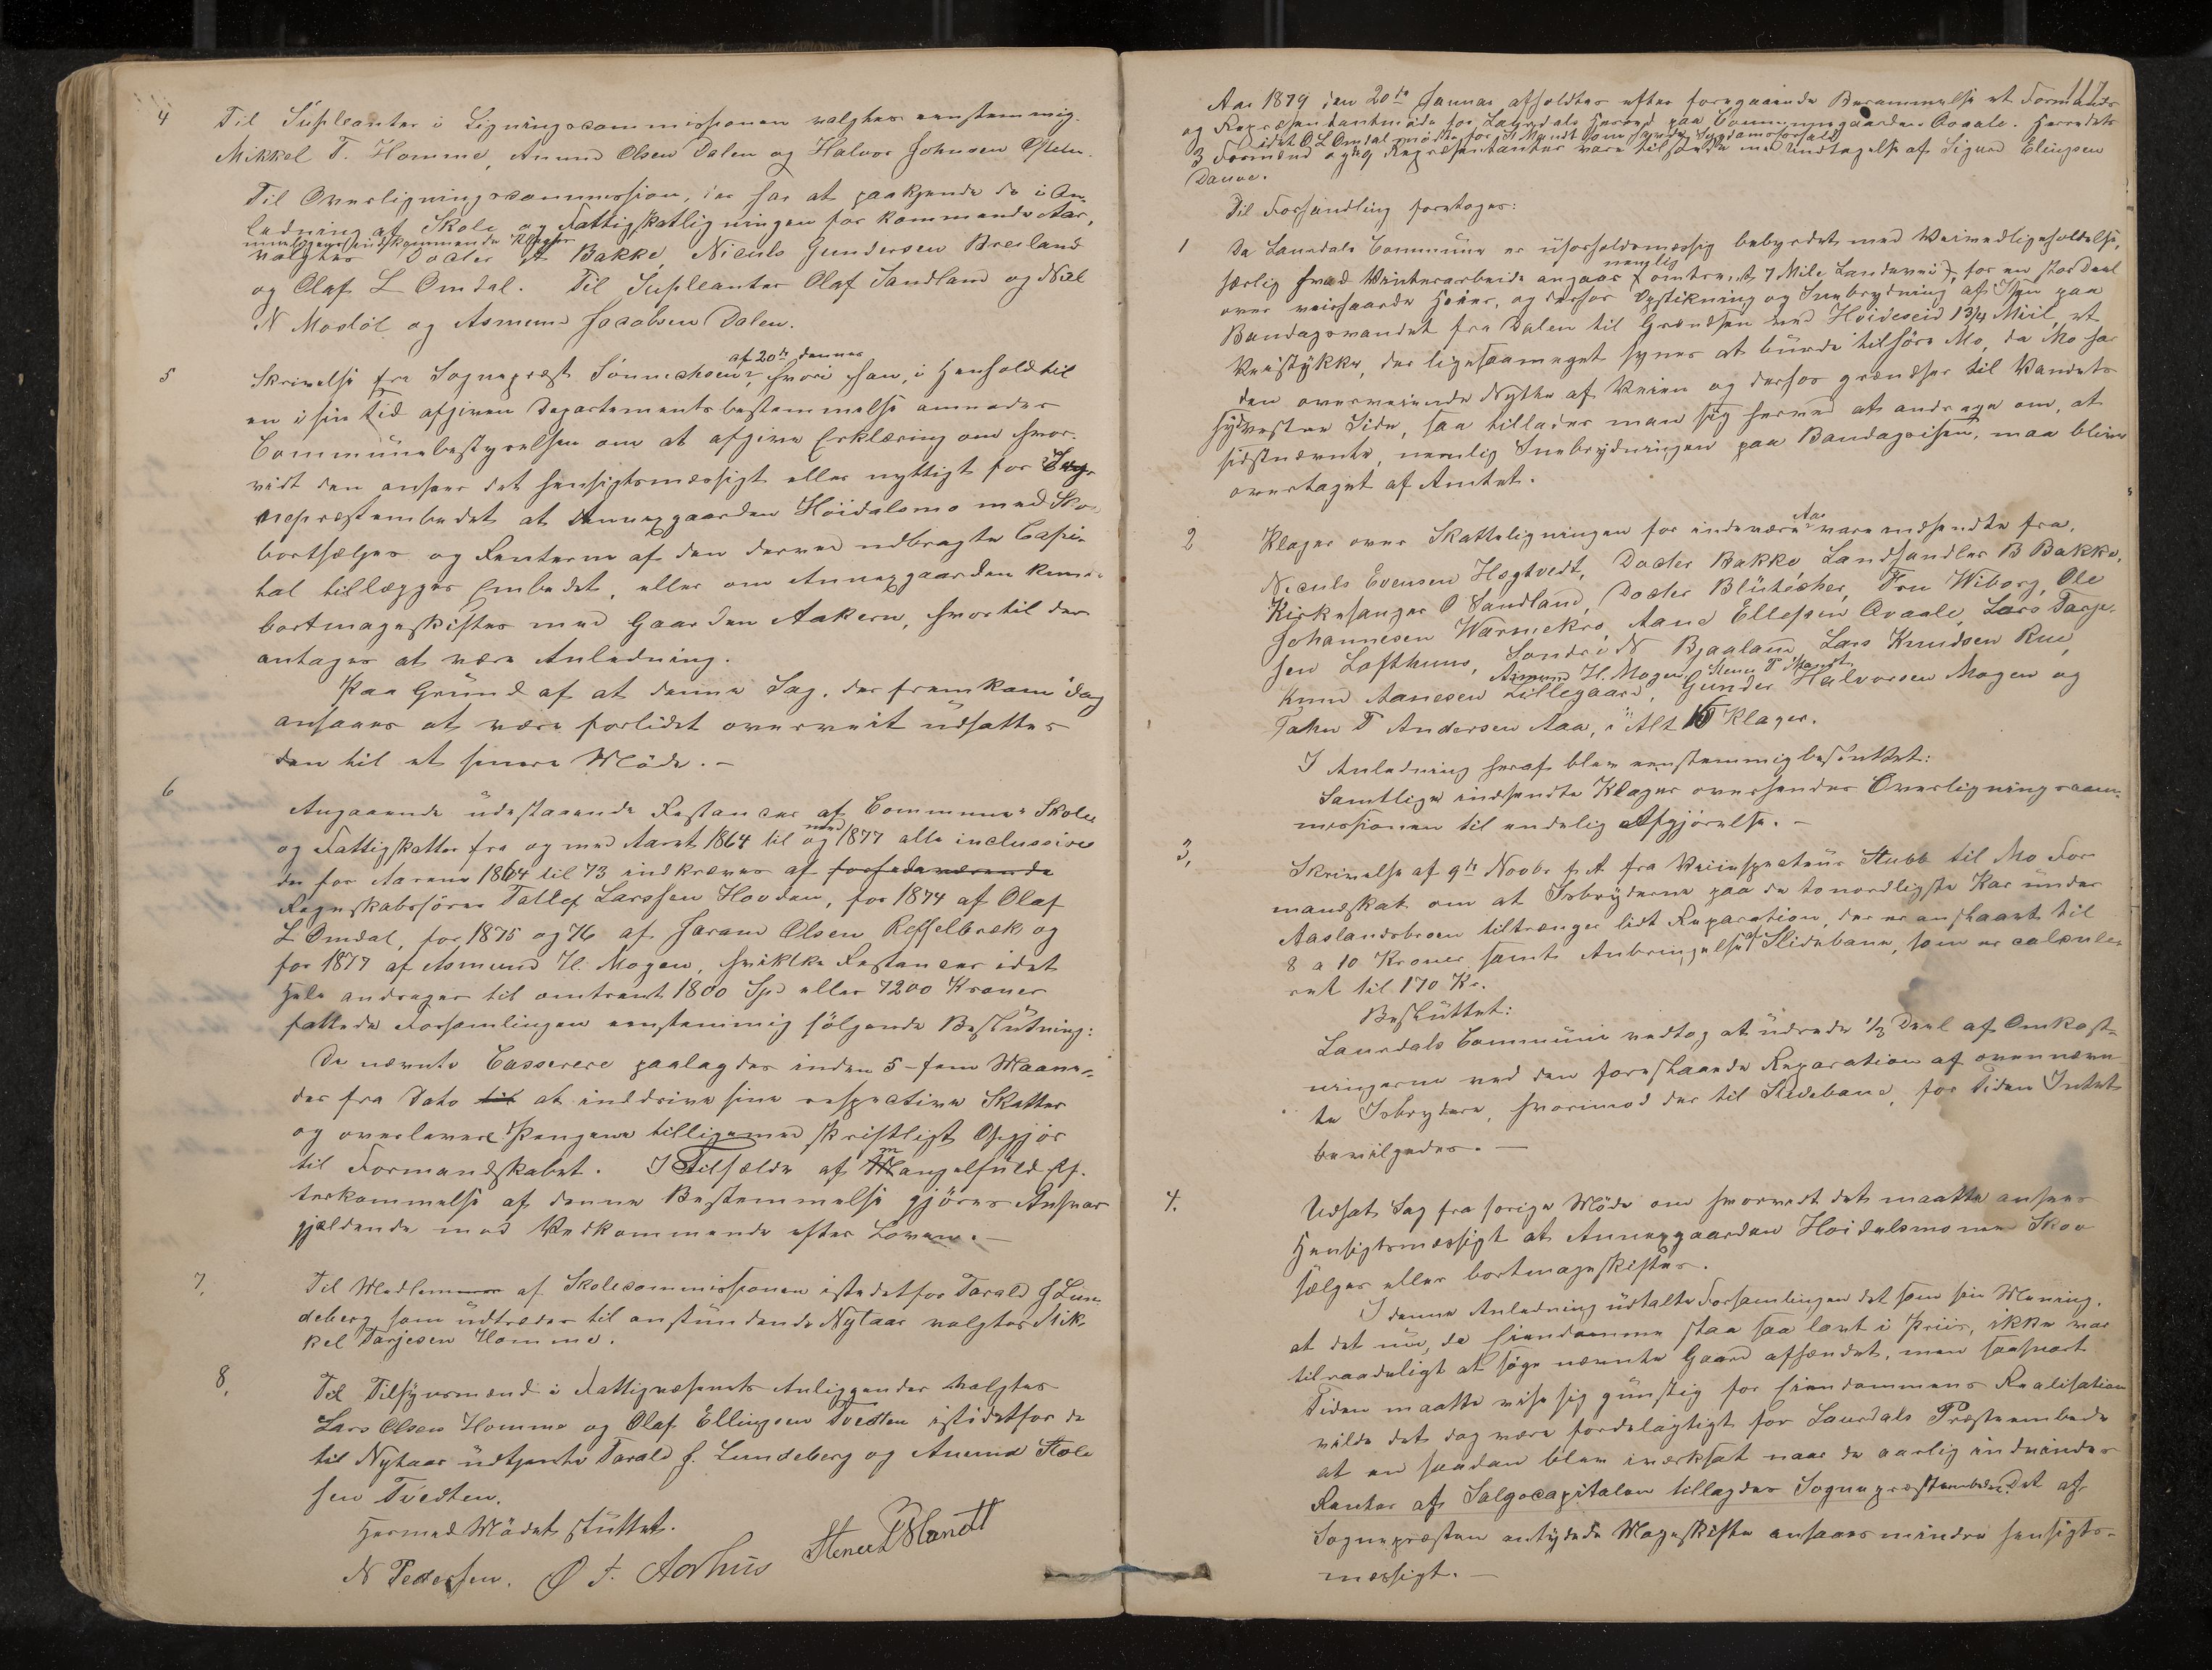 4 Til Supleanter i Ligningscommissionen valgtes eenstemmig.
Mikkel T. Homme, Amund Olsen Dalen og Halvor Johnsen
Til Overligningscommission, der har at paakjende de i An-
ledning af Skole og Fattigskatligningen for kommende Aar,
muligens indkommende Klager
valgtes Docter Bakke, Niculs Gundersen Breiland
og Olaf L Omdal. Til Supleanter Olaf Sandland og Niel
N Modøl og Asmund Jacobsen Dalen.
af 20de dennes
5 Skrivelse fra Sognepræst Sønnichsen, hvori han, i Henhold til
en i sin tid afgiven Departementsbestemmelse anmoder
Communebestyrelsen om at afgive Erklæring om hvor-
vidt den anseer det hensigtsmæssigt eller nyttigt for Sog-
nepræstembedet at Annexgaarden Høidalsmo med Sko-
bortsælges og Renterne af den derved udbragte Capi-
tal tillægges Embedet, eller om Annexgaarden kun-
bortmageskiftes med Gaarden Aakern, hvortil der
antages at være Anledning.
Paa Grund af at denne Sag, der fremkom idag
ansaaes at være forlidet overveiet udsattes
den til et senere Møde. –
6 Angaaende udestaaende Restancer af Commune- Skole
og Fattigskatter fra og med Aaret 1864 til og med 1877 alle inclusive
de for Aarene 1864 til 73 indkræves af forhenværende
Regnskabsfører Tallef Larssen Hovden, for 1874 af Olaf
L Omdal, for 1875 og 76 af Haram Olsen Rosselbræk og
for 1877 af Asmund H. Mogen, hvilke Restancer i det
Hele andrager til omtrent 1800 Spd eller 7200 Kroner
fattede Forsamlingen eenstemmig følgende Beslutning:
De nævnte Casserere paalagdes inden 5 – fem Maane-
der fra Dato til at inddrive sine respective Skatter
og overlevere Pengene tilligemed skriftligt Opgjør
til Formandskabet. I Tilfælde af mangelfuld Ef-
terkommelse af denne Bestemmelse gjøres Ansvar
gjældende mod Vedkommende efter Loven. –
7. Til Medlem af Skolecommissionen istedetfor Tarald J Lun-
deberg som udtræder til anstundende Nytaar valgtes Mik-
kel Tarjesen Homme.
8. Til Tilsynsmænd i Fattigvæsenets Anliggender valgtes
Lars Olsen Homme og Olaf Ellingsen Tvedten istedetfor de
til Nytaar udtjente Tarald J. Lundeberg og Anund Stole
sen Tvedten.
Hermed Mødet sluttet.
N Pedersen. Ø T. Aarhus Stener T Mandt
117
Aar 1879 den 20de Januar afholdtes efter foregaaende Berammelse et Formands
og Repræsentantmøde for Laurdals Herred paa Communegaarden Qvaale. Herredets
idet O L Omdal mødte for S Mandt som havde Sygdomsforfald
3 Formænd og 9 Repræsentanter vare tilstede med Undtagelse af Sigurd Elingsen
Til Forhandling foretoges:
1 Da Laurdals Commune er uforholdsmæssig bebyrdet med Veivedligeholdelse,
særlig hvad Vinterarbeide angaaer (nemlig omtrent 7 Mile Landevei), for en stor Deel
over veirhaarde Høier, og derfor Opstikning og Snebrydning af Isen paa
Bandagsvandet fra Dalen til Grændsen ved Hvideseid 1 3/4 Miil, et
Veistykke, der ligesaameget synes at burde tilhøre Mo, da Mo har
den overveiende Nytte af Veien og derfor grændser til Vandets
sydvestre Side, saa tillader man sig herved at andrage om, at
sidstnævnte, nemlig Snebrydningen paa Bandagsisen, maa blive
overtaget af Amtet.
2 Klager over Skatteligningen for indeværende Aar vare indsendte fra,
Niculs Evensen Høgtvedt, Docter Bakke Landhandler B Bakke,
Kirkesanger O Sandland, Docter Blütecher, Fru Wiborg, Ole
Johannesen Warnekro, Aane Ellefsen Qvaale, Lars Tarje-
sen Lofthuus, Sondre N Bjaaland, Lars Knudsen Rui,
Asmund H. Mogen, Stener T Mandt
Knud Aanesen Lillegaard, Gunder Halvorsen Mogen og
Andersen Aaa, i Alt Klager.
I Anledning heraf blev eenstemmig besluttet:
Samtlige indsendte Klager oversendes Overligningscom-
missionen til endelig Afgjørelse. –
3, Skrivelse af 9de Novbr f. A fra Veiinspecteur Stubb til Mo For
mandskab om at Isbryderne paa de to nordligste Kar under
Aaslandsbroen tiltrænger lidt Reparation, der er anslaaet til
8 a 10 Kroner, samt Anbringelse af Slidebane, som er calcule-
ret til 170 Kr.
Besluttet:
Laurdals Commune vedtog at udrede 1/3 Deel af Omkost-
ningerne ved den forestaaende Reparation af ovennævn
te Isbrydere, hvorimod der til Slidebane, for Tiden Intet
bevilgedes. –
4. Udsat Sag fra forige Møde om hvorvidt det maatte ansees
Hensigtsmæssigt at Annexgaarden Hoidalsmo med Skov
sælges eller bortmageskiftes.
I denne Anledning udtalte Forsamlingen det som sin Mening,
at det nu, da Eiendomme staa saa lavt i Priis, ikke var
tilraadeligt at søge nævnte Gaard afhændet, men saasnart
Tiden maatte vise sig gunstig for Eiendommens Realisation
vilde det dog være fordelagtigt for Laurdals Præsteembede
at en saadan blev iværksat naar de aarlig indvindes
Renter af Salgscapitalen tillagdes Sognepræstembedet. Det af
Sognepræsten antydede Mageskifte ansaaes mindre hensigts-
mæssigt. –